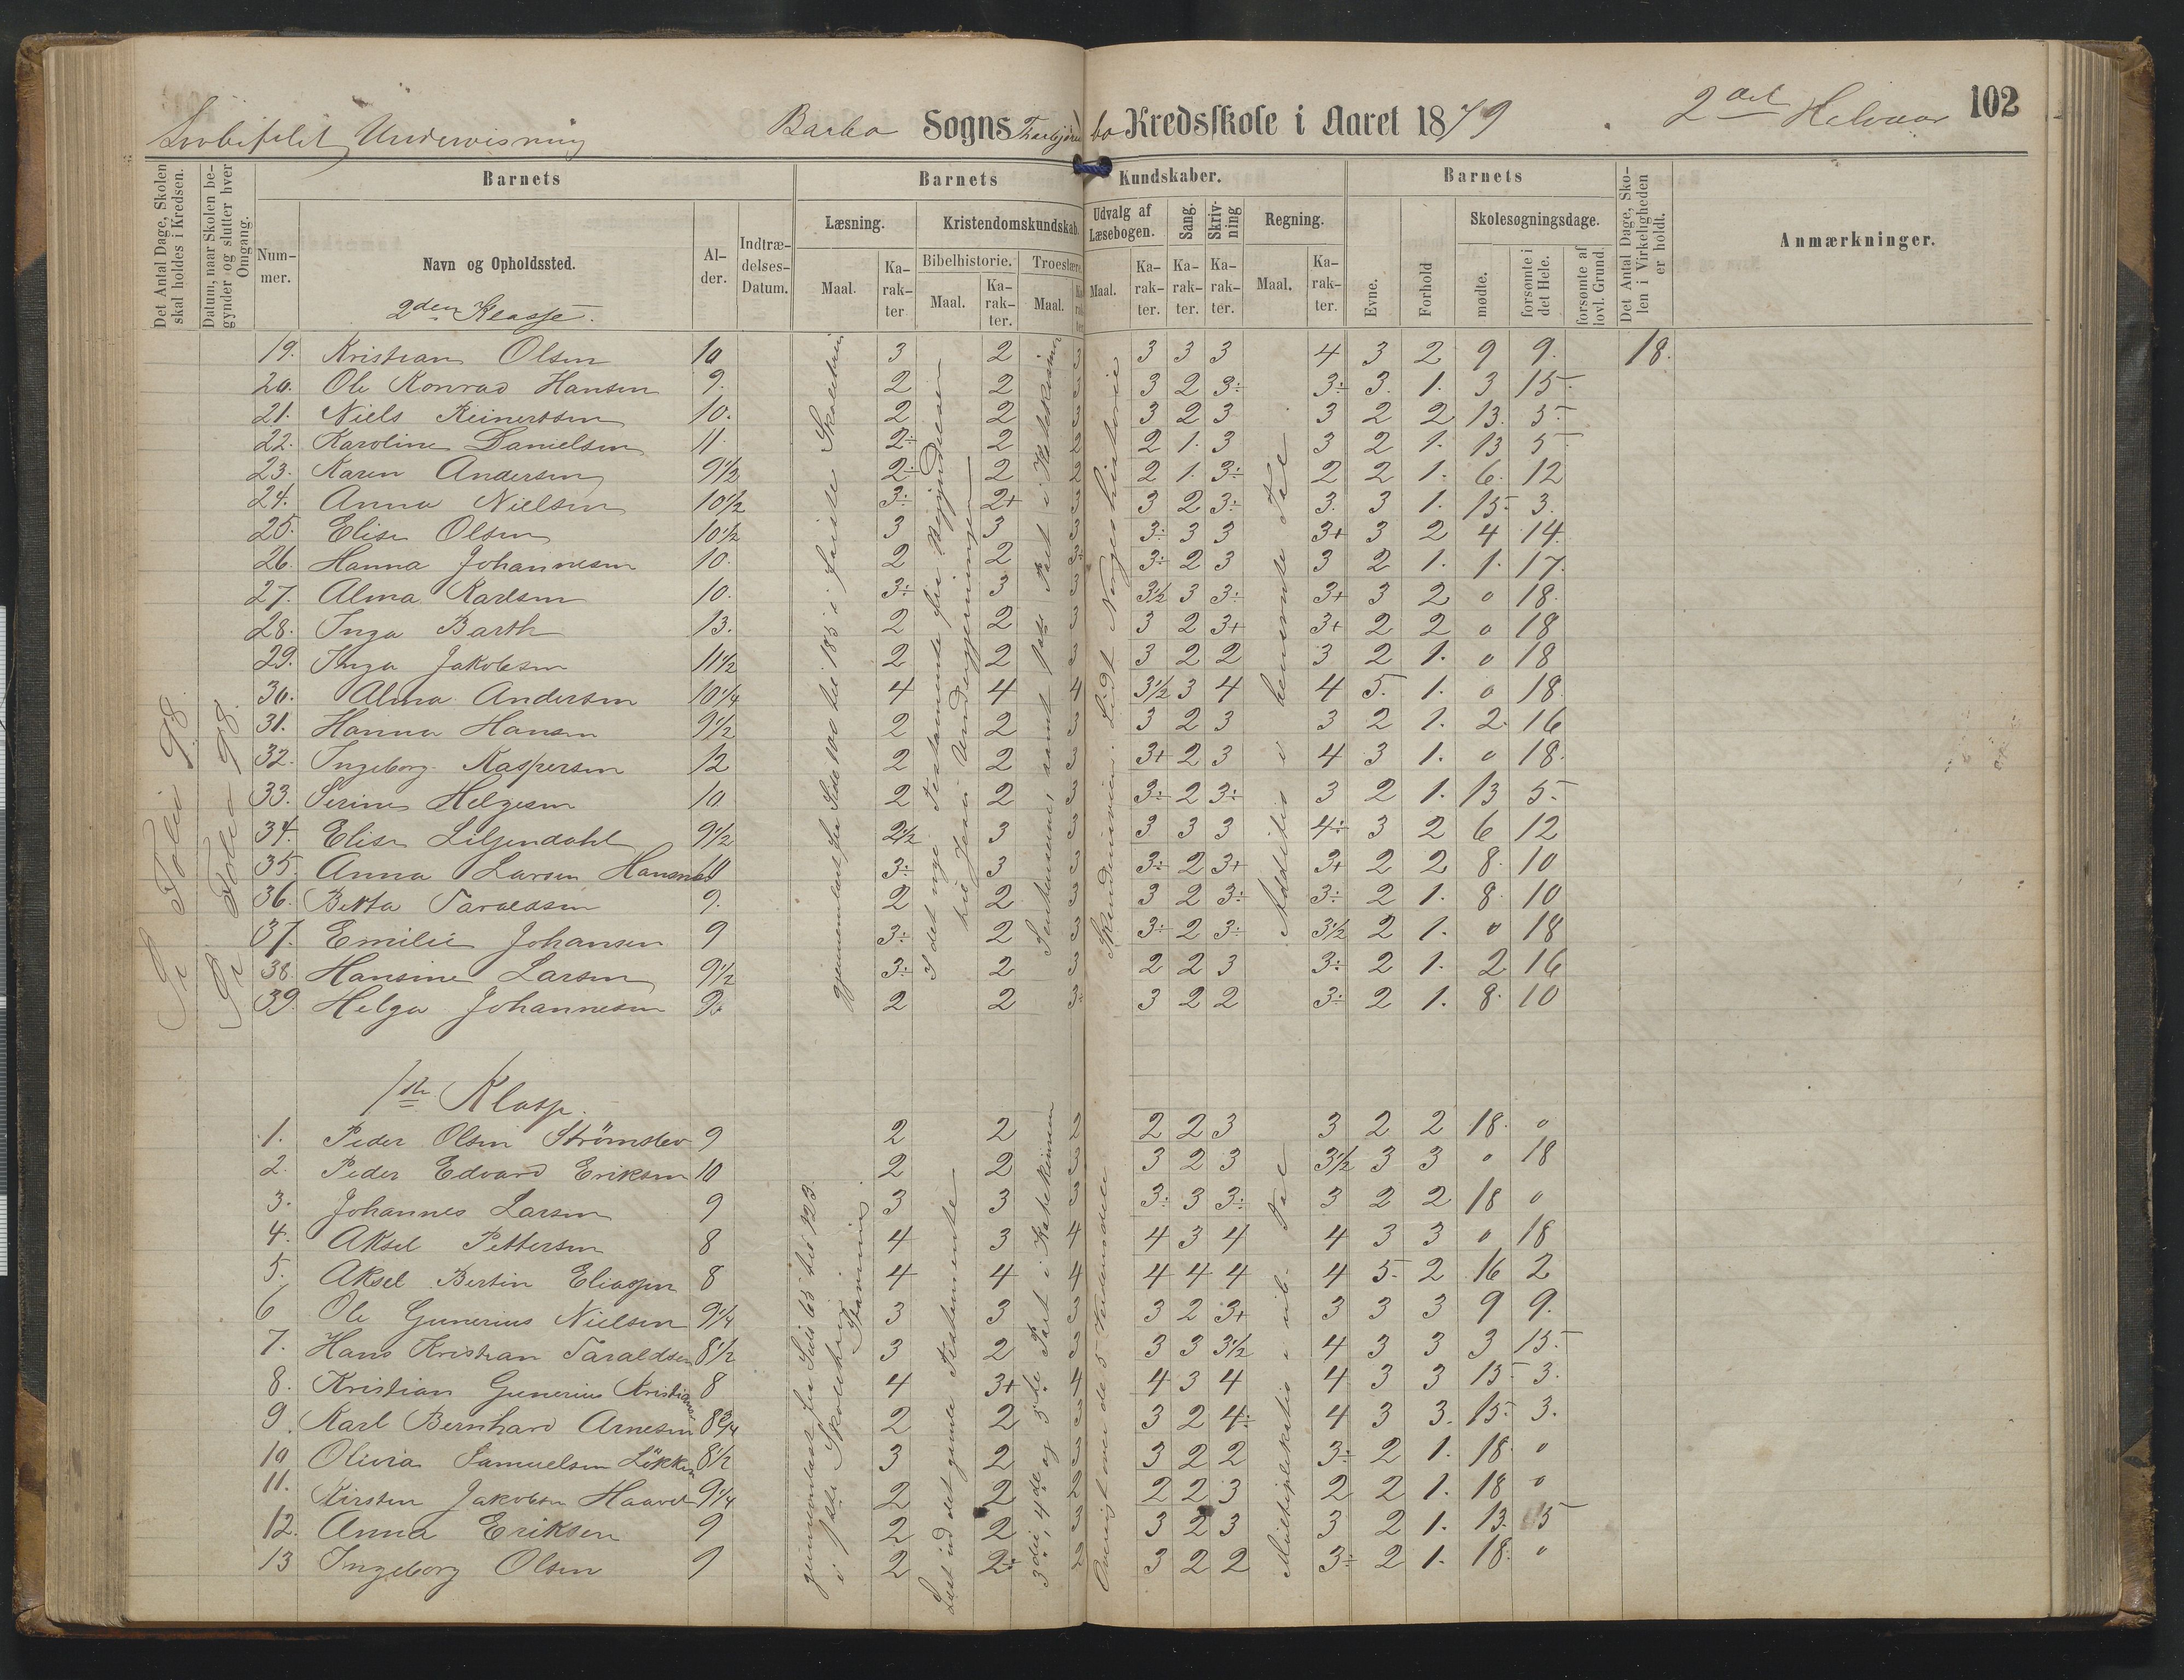 Barbo Sogns Kredsskole i Aaret 1879 2det Halvaar 102
Undervisning
Det Antal Dage, Skolen skal holdes i Kredsen.
Datum, naar Skolen begynder og slutter hver Omgang.
Barnets Barnets Kundskaber. Barnets
Det Antal Dage, Skolen i Virkeligheden er holdt.
Anmærkninger.
Nummer. Navn og Opholdssted. Alder. Indtrædelses-Datum.
Læsning. Kristendomskundskab. Udvalg af Læsebogen. Sang. Skrivning Regning. Evne. Forhold Skolesøgningsdage.
Bibelhistorie. Troeslære.
Maal. Karakter Maal. Karakter. Maal. Karakter. Maal. Karakter. Karakter. Karakter. Maal. Karakter. mødte. forsømte i det Hele. forsømte af lovl. Grund.
2den Klasse.
19. Kristian Olsen 10 3 2 3 3 3 3 4 3 2 9 9. 18.
20. Ole Konrad Hansen 9. 2 2 3 3 2 3÷ 3÷ 3. 1. 3 15.
21. Niels Reinertsen 10. 2 2 3 3 2 3 3 2 2 13. 5.
22. Karoline Danielsen 11. 2÷ 2 2 2 1. 3 3 2 1. 13 5
23. Karen Andersen 9 1/2 2÷ 2 2 2 1. 3÷ 2 2 1. 6. 12
24. Anna Nielsen 10 1/2 3÷ 2+ 3 3 2 3÷ 3. 3 1. 15. 3.
25. Elise Olsen 10 1/2 3 3 3 3÷ 3 3 3+ 3 2 4 14.
26. Hanna Johannesen 10. 2 2 3÷ 3÷ 2 3 3 2 1. 1. 17.
27. Alma Karlsen 10. 3÷ 3 3 3 1/2 3 3÷ 3+ 3 2 0 18.
28. Inga Barth 13. 2 2 3 3 2 3+ 3+ 2 2 0 18
29. Inga Jakobsen 11 1/2 2 2 3 3 2 2 3 2 1. 0 18
30. Alma Andersen 10 1/4 4 4 4 3 1/2 3 4 4 5. 1. 0 18.
31. Hanna Hansen 9 1/2 2 2 3 3 2 3 3 2 1. 2. 16
32. Ingeborg Kaspersen 12 2 2 3 3+ 2 3 4 3 1. 0 18.
33. Serine Helgesen 10 2 2 3 3÷ 2 3÷ 3 2 1. 13 5.
34. Elise Liljendahl 9 1/2 2 1/2 3 3 3 3 3 4÷ 3 2 6 12
35. Anna Larsen 3÷ 3 3 3÷ 2 3+ 3+ 2 2 8. 10
36. Berta Taraldsen 9. 2 2 3 3 2 3÷ 3÷ 2 1. 8. 10
37. Emilie Johansen 9 3÷ 2 3 3÷ 2 3÷ 3 1/2 2 1. 0 18
38. Hansine Larsen 9 1/2 3÷ 2 3 2 2 3 3÷ 2 1. 2 16
39. Helga Johannesen 9. 2 2 3÷ 3 2 2 3÷ 2 1. 8. 10
Se Folie 98.
Se Folie 98.
gjennemlæst fra Side 100 til 185 i første Skoletrin
I det nye Testamente fra Begyndelsen
til Jesu Undergjerninger
Addition i benævnte Tal.
1ste Klasse.
1. Peder Olsen 9 2 2 2 2 2 3 3 2 2 18. 0
2. Peder Edvard Eriksen 10 2 2 3 3 2 3 3 1/2 3 3 0 18
3. Johannes Larsen 9 3 3 3 3÷ 3 3÷ 3 2 2 18 0
4. Aksel Pettersen 8 4 3 4 4 3 4 4 3 3 0 18
5. Aksel Bertin Eliassen 8 4 4 4 4 4 4 4 5. 2 16 2
6 Ole Gunerius Nielsen 9 1/4 3 3 3 3 2 3+ 3 3 3 9 9.
7. Hans Kristian Taraldsen 8 1/2 3 2 3 3 3 3 1/2 4 3 3 3 15.
8. Kristian Gunerius 8 4 3+ 4 4 3 4 4 3 3 15 3.
9. Karl Bernhard Arnesen 8 3/4 2 2 3 3 2 4÷ 4 3 3. 15. 3.
10 Olivia Samuelsen Løkken 8 1/2 3 2 3 3 2 2 3÷ 2 1. 18. 0
11. Kirsten Jakobsen 9 1/4 2 2 2 2 2 3 2 2 1. 18 0
12. Anna Eriksen 9 2 2 3 3 2 3 3 2 1. 13. 5
13 Ingeborg Olsen 9 2 2÷ 2 3 2 2 3÷ 2 1. 18. 0
gjennemlæst fra Side 65 til 123
i 1ste Skoletrin
Læst ud det gamle Testamente
3die, 4de og 5te Part i Katekismen
Multiplikation i